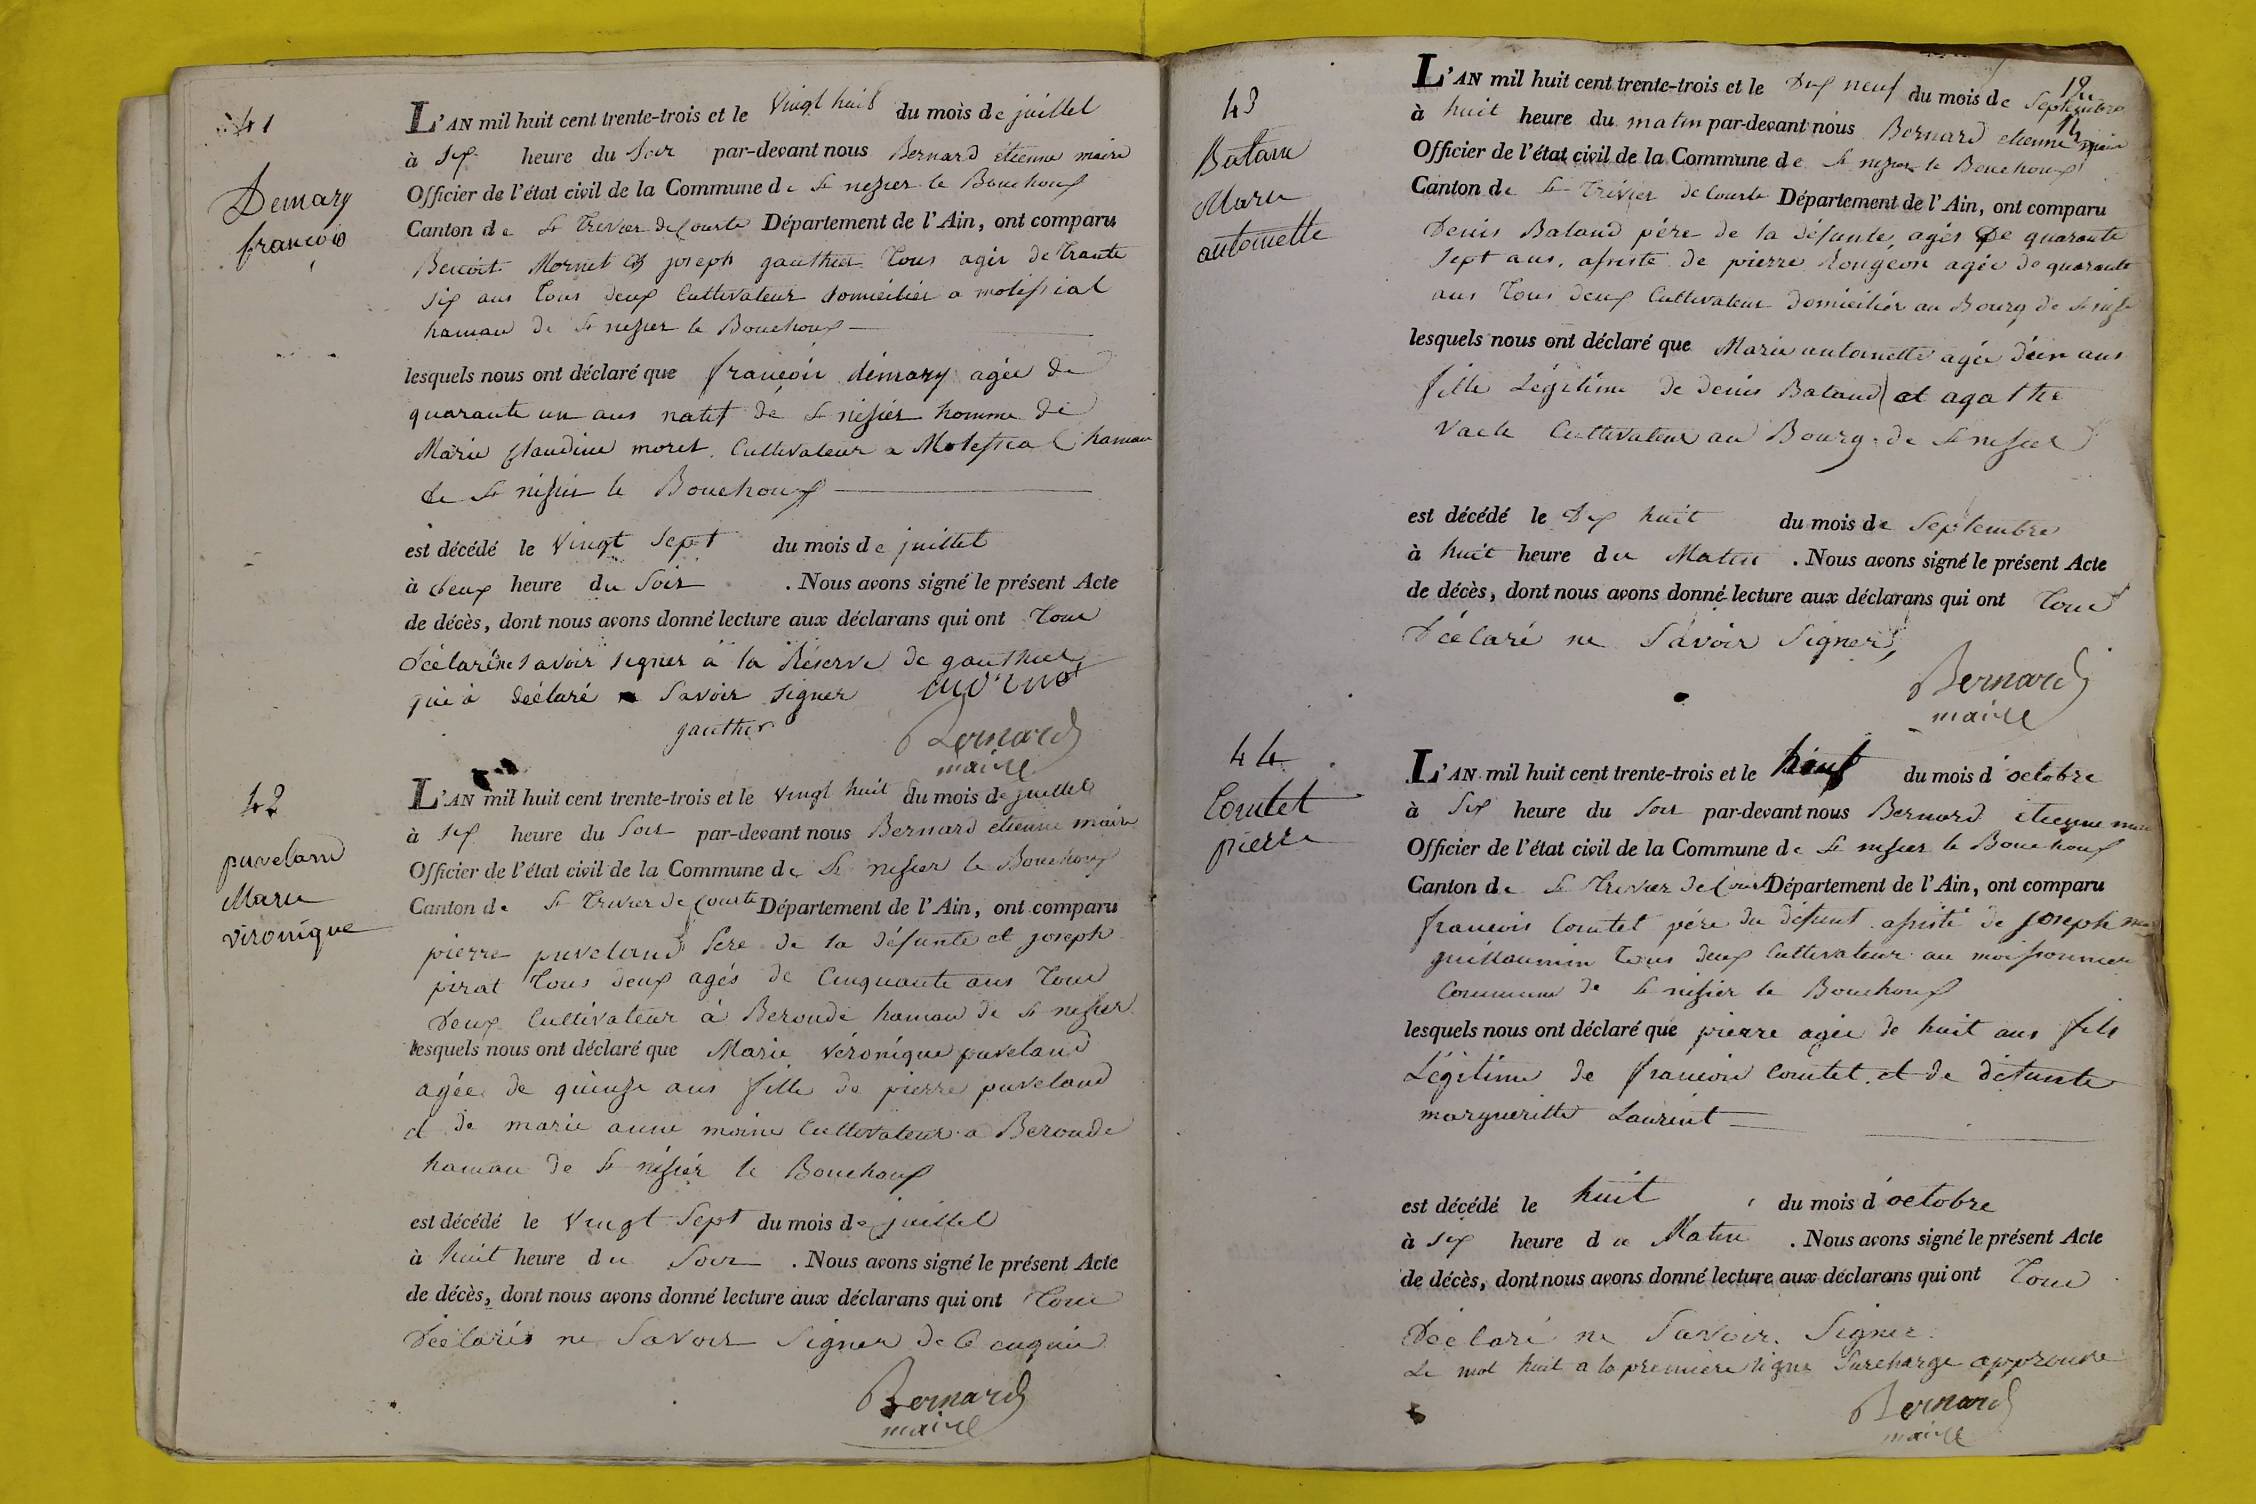 41
Demary
françois
L'AN mil huit cent trente-trois et le vingt huit du mois de juillet
à six heure du soir par-devant nous Bernard etienne maire
Officier de l'état civil de la Commune de St nisier le Bouchoux
Canton de St Trivier de Courte Département de l'Ain, ont comparu
Benoit Mornet et joseph gauthier Tous agés de Trante
six ans tous deux Cultivateur domiciliés a molissial
hamau de St nisier le Bouchoux
lesquels nous ont déclaré que françois démary agée de
quarante un ans natif de St nisier homme de
Marie Claudine moret Cultivateur a Molissial hamau
de St nisier le Bouchoux
est décédé le vingt sept du mois de juillet
à deux heure du soir . Nous avons signé le présent Acte
de décès, dont nous avons donné lecture aux déclarans qui ont Tous
Déclaré ne savoir signer à la Réserve de gauthier
qui à déclaré savoir signer
gauthier Bernard
maire
42
puveland
Marie
vironique
L'AN mil huit cent trente-trois et le vingt huit du mois de juillet
à six heure du soir par-devant nous Bernard etienne maire
Officier de l'état civil de la Commune de St nisier le Bouchoux
Canton de St Trivier de Courte Département de l'Ain, ont comparu
pierre puveland Pere de la défunte et joseph
pirat Tous deux agés de Cinquante ans Tous
Deux Cultivateur à Beroude hamau de St nisier
lesquels nous ont déclaré que Marie véronique puveland
agée de quinze ans fille de pierre puveland
et de marie anne moine Cultivateur a Beroude
hamau de St nisier le Bouchoux
est décédé le vingt sept du mois de juillet
à huit heure du soir . Nous avons signé le présent Acte
de décès, dont nous avons donné lecture aux déclarans qui ont Tous
Déclarés ne savoir signer de ce enquis
Bernard
maire
43
Bataud
Marie
antoinette
L'AN mil huit cent trente-trois et le Dix neuf du mois de Septembre
à huit heure du matin par-devant nous Bernard etienne maire
Officier de l'état civil de la Commune de St nisier le Bouchoux
Canton de St Trivier de Courte Département de l'Ain, ont comparu
Denis Bataud père de la défunte, agés de quarante
sept ans, assisté de pierre Rongeon agée de quarante
ans Tous deux Cultivateur domiciliés au Bourg de St nisier
lesquels nous ont déclaré que Marie antoinette agée d'un ans
fille Légitime de denis Bataud et agathe
Cultivateur au Bourg de St nisier
est décédé le Dix huit du mois de Septembre
à huit heure du Matin . Nous avons signé le présent Acte
de décès, dont nous avons donné lecture aux déclarans qui ont Tous
Déclaré ne savoir signer,
Bernard
maire
44
Comtet
pierre
L'AN mil huit cent trente-trois et le huit du mois d'octobre
à six heure du soir par-devant nous Bernard etienne maire
Officier de l'état civil de la Commune de St nisier le Bouchoux
Canton de St Trivier de Courte Département de l'Ain, ont comparu
francois Comtet père du défunt assisté de joseph
guillaumin Tous deux Cultivateur au moissonnier
Commune de St nisier le Bouchoux
lesquels nous ont déclaré que pierre agée de huit ans fils
Légitime de francois Comtet et de défunte
margueritte Laurent
est décédé le huit du mois d'octobre
à six heure du Matin . Nous avons signé le présent Acte
de décès, dont nous avons donné lecture aux déclarans qui ont Tous
Déclaré ne savoir Signer
Le mot huit a la premiere ligne surchargé approuvé
Bernard
maire